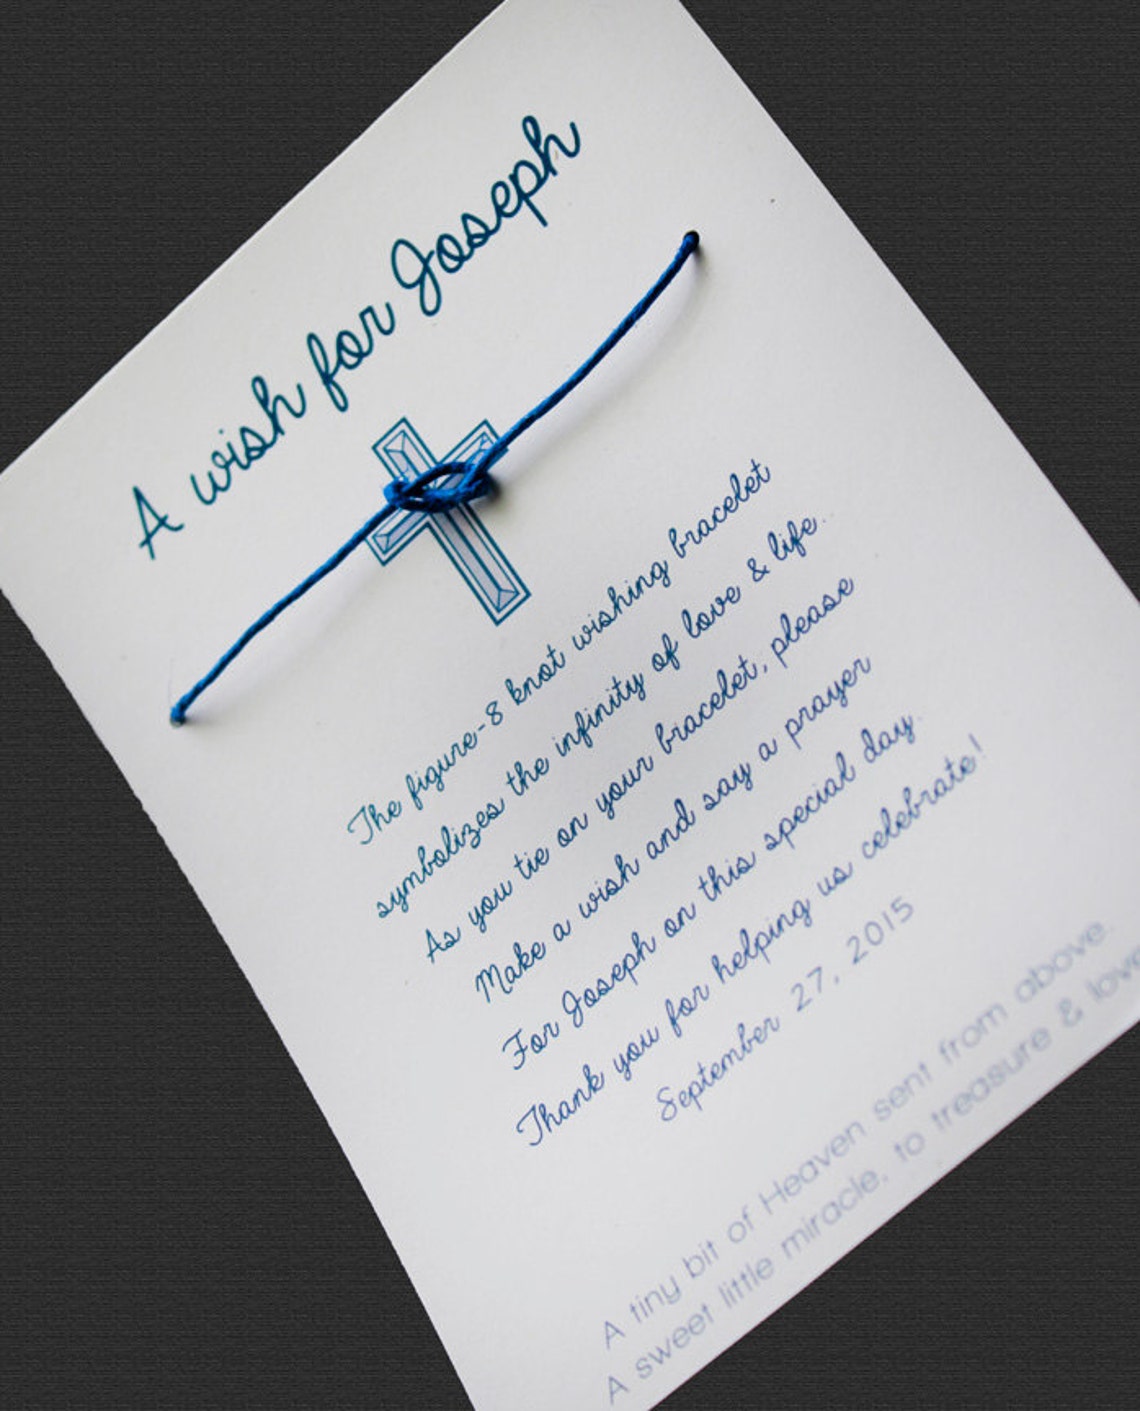 A wish for Joseph
The figure-8 knot wishing bracelet
symbolizes the infinity of love & life.
As you tie on your bracelet, please
Make a wish and say a prayer
For Joseph on this special day.
Thank you for helping us celebrate!
September 27, 2015
A tiny bit of Heaven sent from above.
A sweet little miracle, to treasure & love